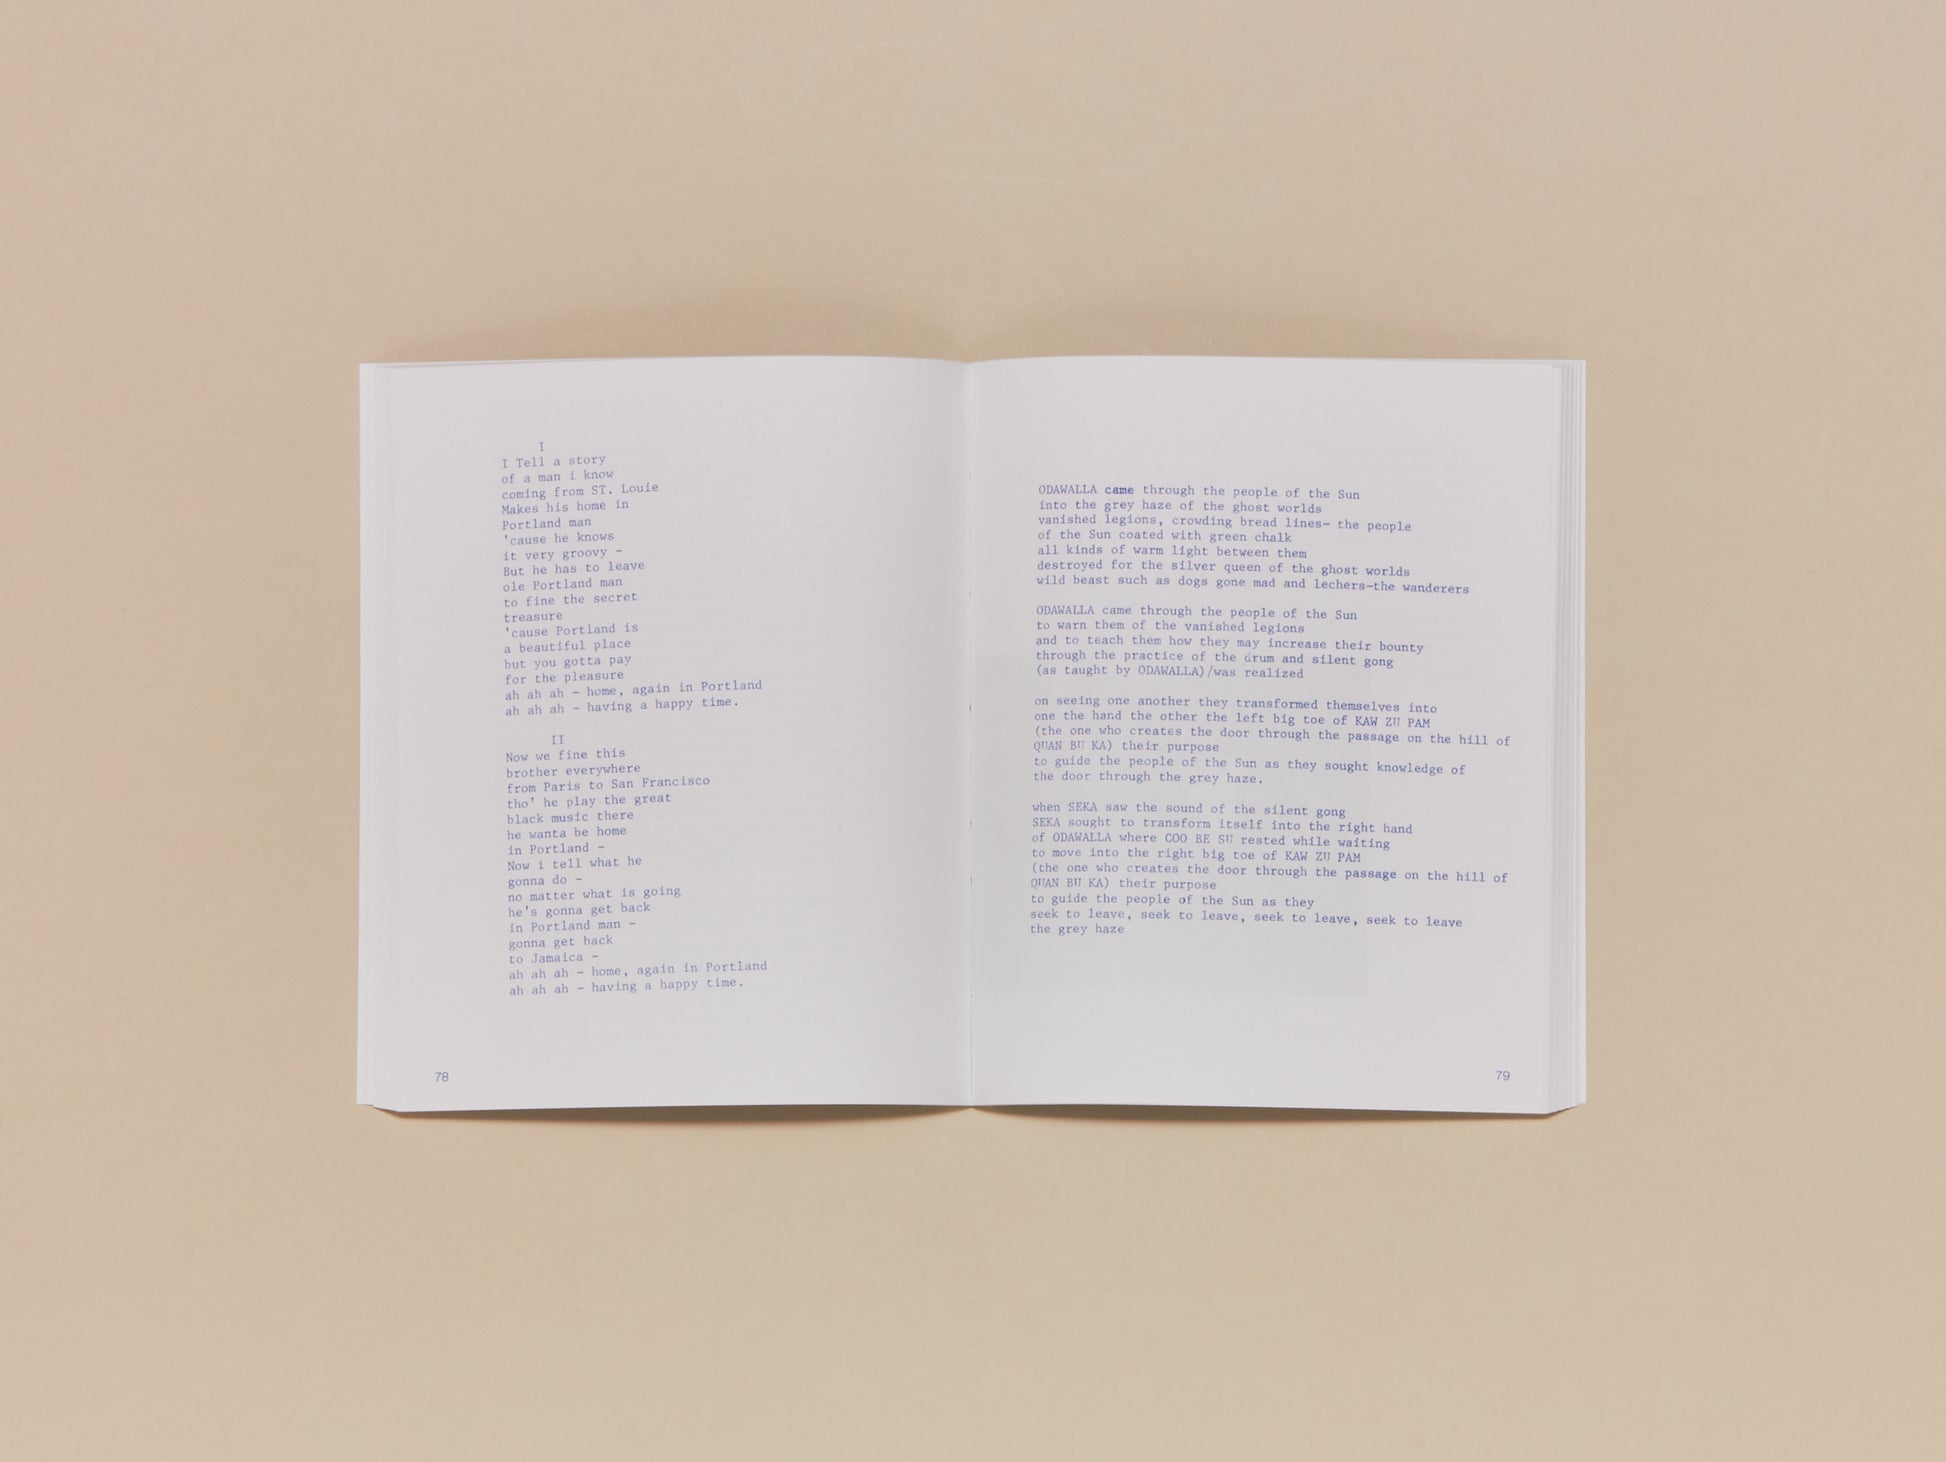 I
I Tell a story
of a man i know
coming from ST. Louie
Makes his home in
Portland man
'cause he knows
it very groovy -
But he has to leave
ole Portland man
to fine the secret
treasure
'cause Portland is
a beautiful place
but you gotta pay
for the pleasure
ah ah ah - home, again in Portland
ah ah ah - having a happy time.
II
Now we fine this
brother everywhere
from Paris to San Francisco
tho' he play the great
black music there
he wanta be home
in Portland -
Now i tell what he
gonna do -
no matter what is going
he's gonna get back
in Portland man -
gonna get back
to Jamaica -
ah ah ah - home, again in Portland
ah ah ah - having a happy time.
78
ODAWALLA came through the people of the Sun
into the grey haze of the ghost worlds
vanished legions, crowding bread lines- the people
of the Sun coated with green chalk
all kinds of warm light between them
destroyed for the silver queen of the ghost worlds
wild beast such as dogs gone mad and lechers-the wanderers
ODAWALLA came through the people of the Sun
to warn them of the vanished legions
and to teach them how they may increase their bounty
through the practice of the drum and silent gong
(as taught by ODAWALLA)/was realized
on seeing one another they transformed themselves into
one the hand the other the left big toe of KAW ZU PAM
(the one who creates the door through the passage on the hill of
QUAN BU KA) their purpose
to guide the people of the Sun as they sought knowledge of
the door through the grey haze.
when SEKA saw the sound of the silent gong
SEKA sought to transform itself into the right hand
of ODAWALLA where COO BE SU rested while waiting
to move into the right big toe of KAW ZU PAM
(the one who creates the door through the passage on the hill of
QUAN BU KA) their purpose
to guide the people of the Sun as they
seek to leave, seek to leave, seek to leave, seek to leave
the grey haze
79